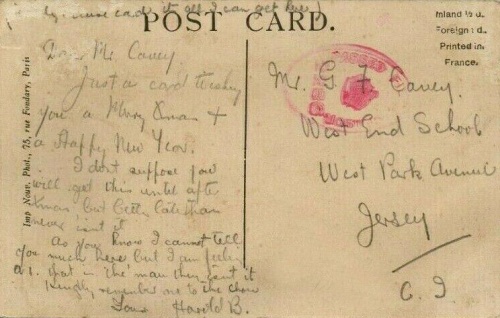 cards it all I can get here)
POST CARD.
Inland ½ d.
Foreign 1 d.
Printed in
France.
Imp Nouv. Phot., 75, rue Fondary, Paris
PASSED
Dear Mr Cavey
Just a card wishing
you a Merry Xmas +
a Happy New Year.
I dont suppose you
will get this until after
Xmas but better late than
never isn't it
As you know I cannot tell
you much here but I am feeling
A1. that is the main thing isn't it
Kindly remember me to the
Yours Harold B.
Mr. G F. Cavey.
West End School
West Park Avenue
Jersey
C. I